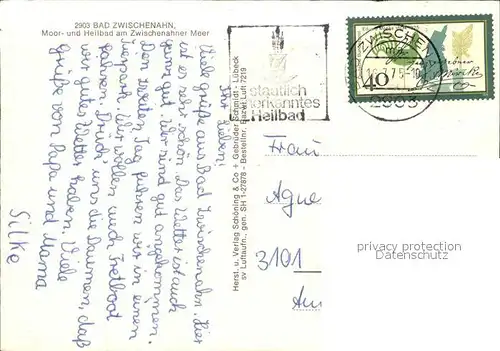 2903 BAD ZWISCHENAHN,
Moor- und Heilbad am Zwischenahner Meer
Ihr Lieben!
Viele Grüße aus Bad Zwischenahn. Hier
ist es sehr schön. Das Wetter ist auch
ganz gut. Wir sind gut angekommen.
Den ersten Tag fuhren wir in einen
Tierpark. Wir wollen auch Tretboot
fahren. Drück' uns die Daumen, daß
wir gutes Wetter haben. Viele
Grüße von Papa und Mama
Silke
Herst. u. Verlag Schöning & Co + Gebrüder Schmidt - Lübeck
sv Luftaufn.: gen. SH 1-27878 - Bestellnr. Luft 7219
staatlich
anerkanntes
Heilbad
ZWISCHEN
2903
40
Frau
Agne
3101
privacy protection
Datenschutz